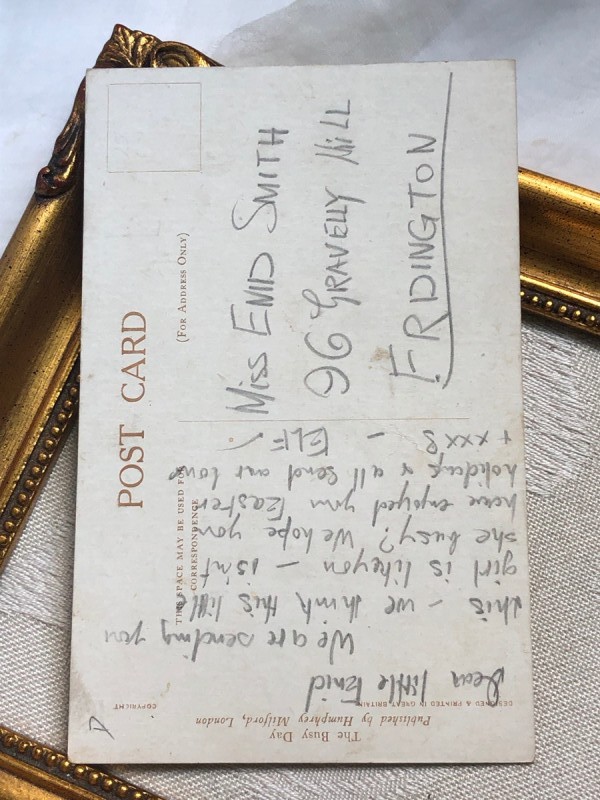 POST CARD
THIS SPACE MAY BE USED FOR
CORRESPONDENCE
(FOR ADDRESS ONLY)
Miss ENID SMITH
96 GRAVELLY HILL
ERDINGTON
Dear little Enid
We are sending you
this – we think this little
girl is like you – isn't
she busy? We hope you
have enjoyed your Easter
holidays & all send our love
+ xxx – ELF
The Busy Day
Published by Humphrey Milford, London
DESIGNED & PRINTED IN GREAT BRITAIN
COPYRIGHT
D